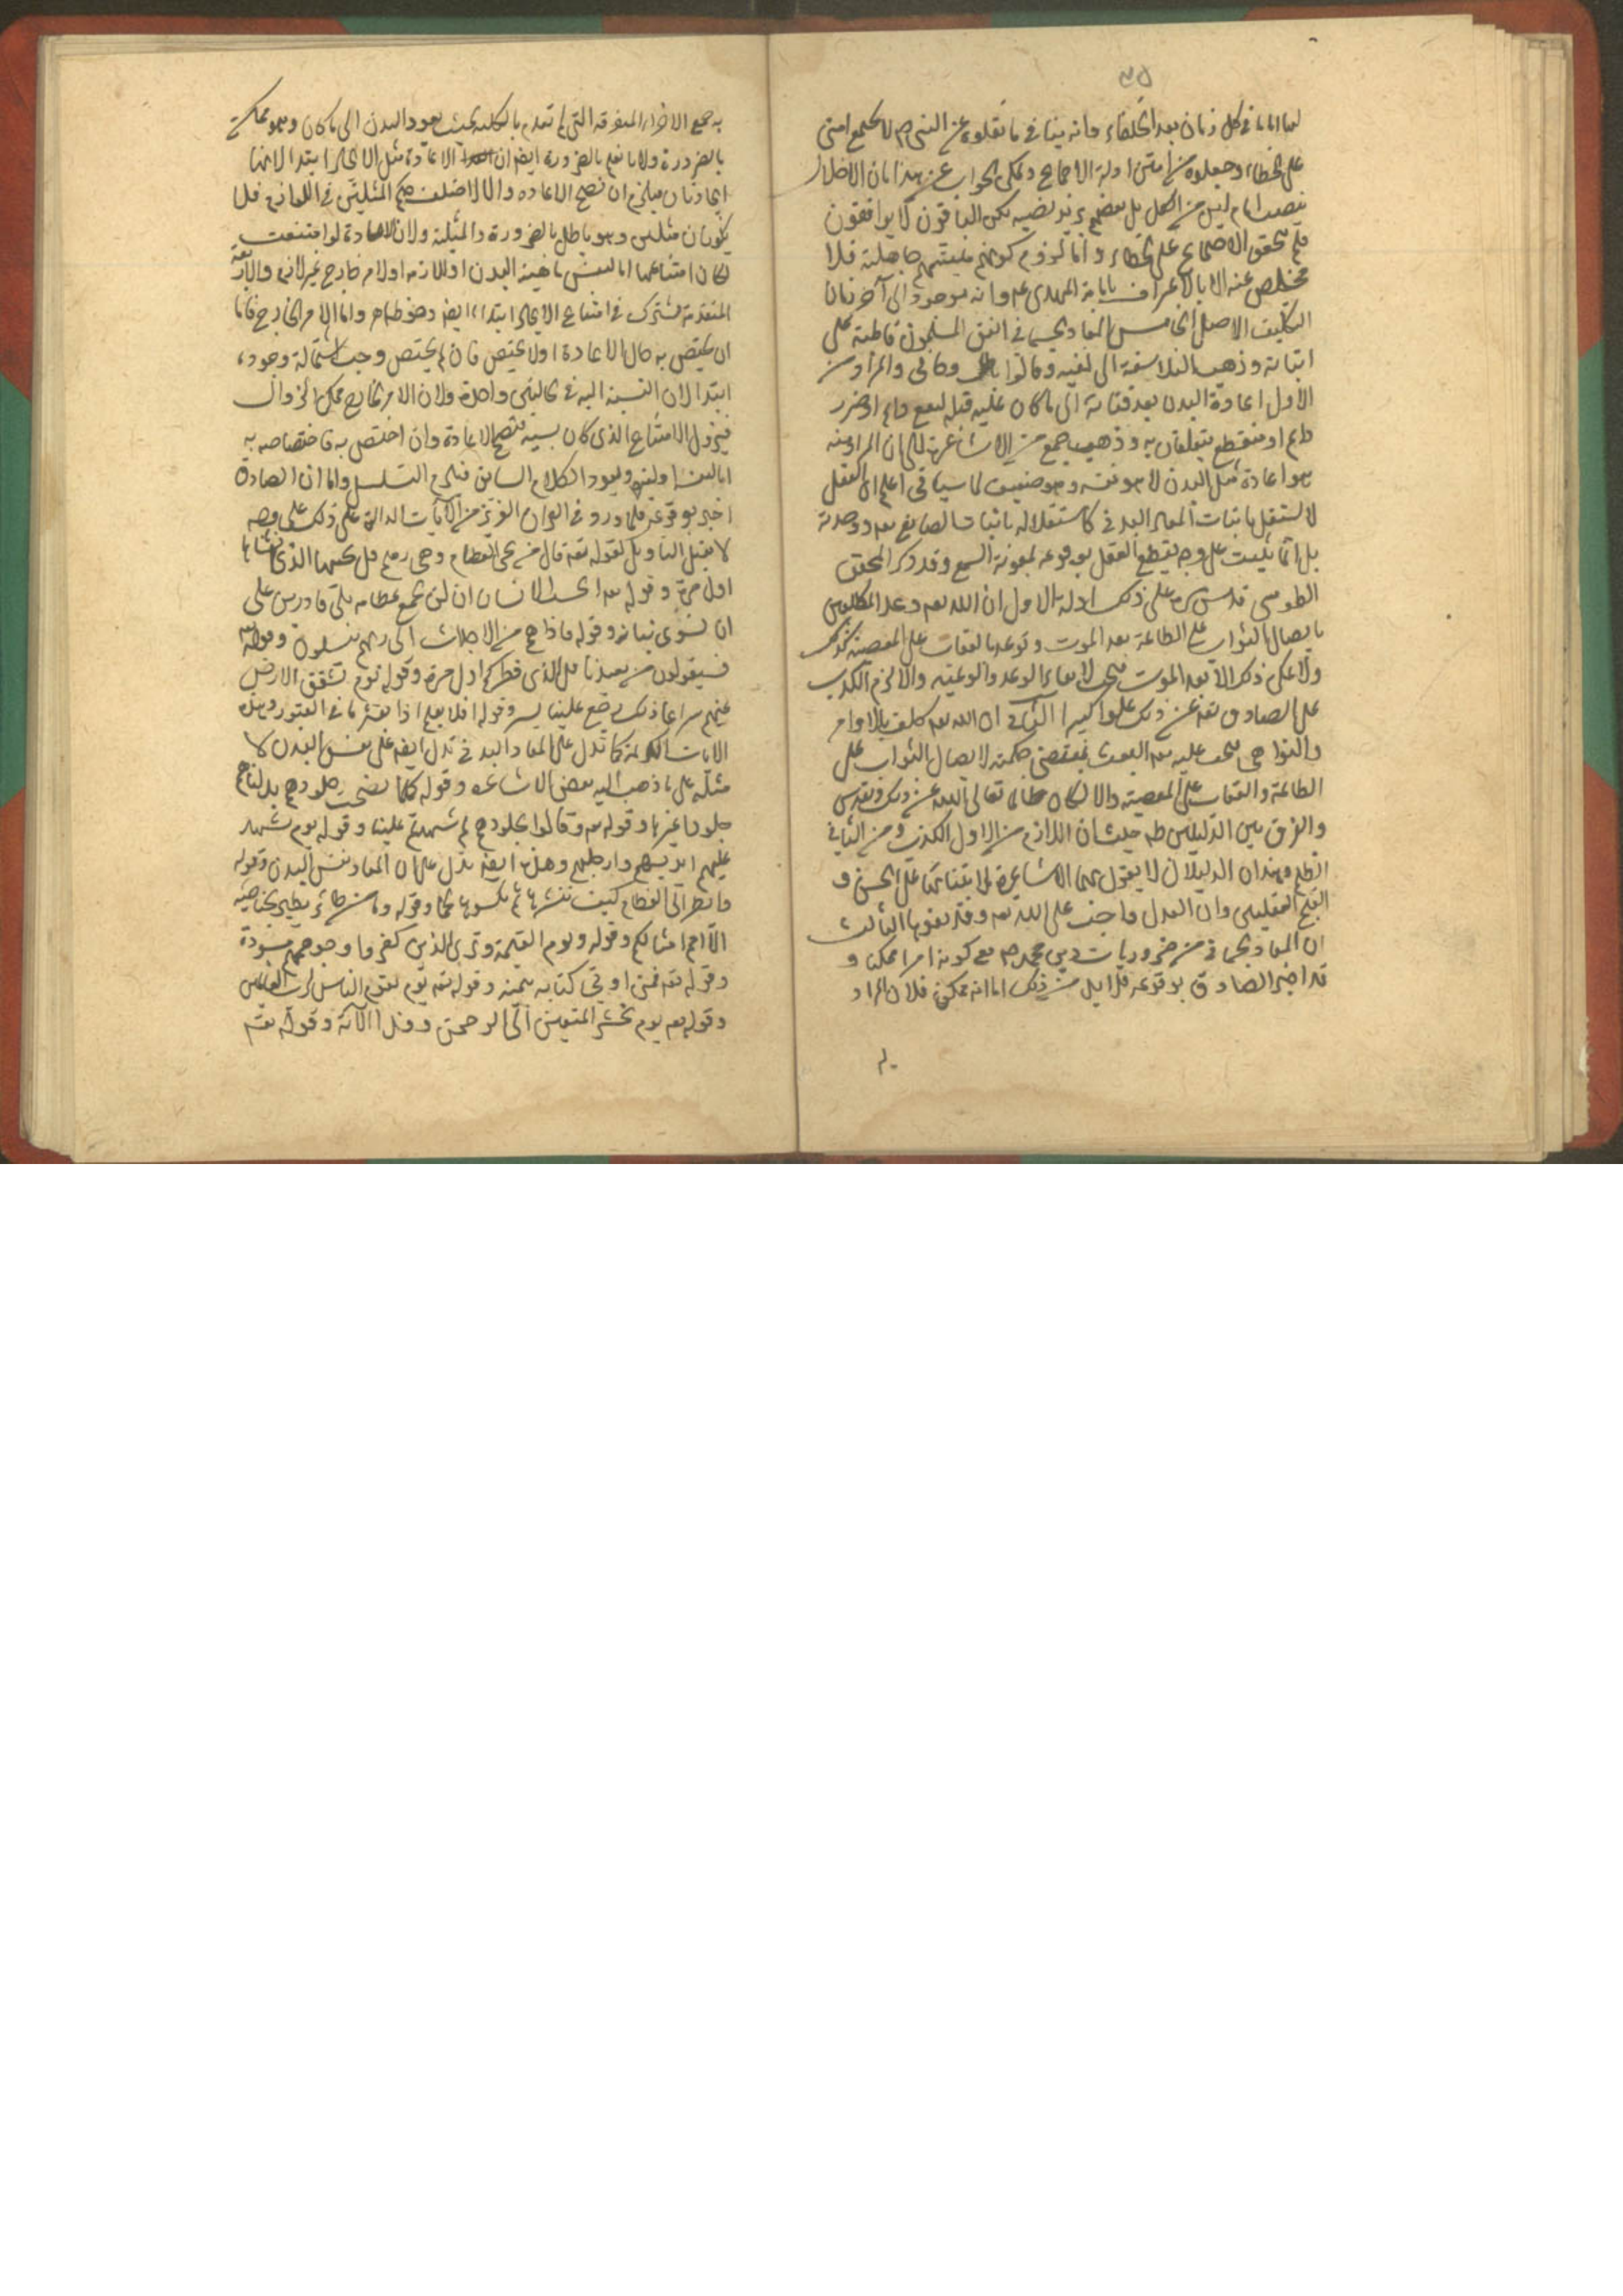 ٣٥
لها امامًا في كل زمان بعد الخلفاء وانه ينافي ما نقلوه عن النبي ص لا تجتمع امتي
على الخطاء وجعلوه من امتن ادلة الاجماع ويمكن الجواب عن هذا بان الاخلال
بنصب امام ليس من الكل بل بعضهم يريد نصبه لكن الباقون لا يوافقون
فلم يتحقق الاجماع على الخطاء واما لزوم كونهم ميتتهم جاهلية فلا
مخلص عنه الا بالاعتراف بامامة المهدي ع م وانه موجود الى آخر زمان
التكليف الاصل الخامس في المعاد الجسماني اتفق المسلمون قاطبة على
اثباته وذهب الفلاسفة الى نفيه وقالوا وحاني والمراد من
الاول اعادة البدن بعد فنائه الى ما كان عليه قبله لنفع دائم او ضرر
دائم او منقطع يتعلقان به وذهب جمع من الاشاعرة الى ان المراد منه
هو اعادة مثل البدن لا هو نفسه وهو ضعيف لما سيأتي اعلم ان العقل
لا يستقل باثبات المعاد البدني كاستقلاله باثبات الصانع تعه ووحدته
بل انما يثبت على وجه يقطع العقل بوقوعه بمعونة السمع وقد ذكر المحقق
الطوسي قدس سره على ذلك ادلة الاول ان الله تعه وعد المكلفين
بايصال الثواب على الطاعة بعد الموت وتوعد بالعقاب على المعصية كذلك
ولا يمكن ذلك الا بعد الموت فيجب لايفاء الوعد والوعيد والا لزم الكذب
على الصادق تعه عن ذلك علوا كبيرا الثاني ان الله تعه كلف بالاوامر
والنواهي فيجب عليه تعه البعث بمقتضى حكمته لايصال الثواب على
الطاعة والعقاب على المعصية والا لكان ظالما تعالى الله عن ذلك وتقدس
والفرق بين الدليلين ظه حيث ان اللازم من الاول الكذب ومن الثاني
الظلم وهذان الدليلان لا يقول بهما الاشاعرة لابتنائهما على الحسن و
القبح العقليين وان العدل واجب على الله تعه وقد نفوها الثالث
ان المعاد الجسماني من ضروريات دين محمد ص مع كونه امرا ممكنا و
قد اخبر الصادق بوقوعه فلا بد من ذلك اما انه ممكن فلان المراد
به
به جمع الاجزاء المتفرقة التي لم تعدم بالكلية بحيث يعود البدن الى ما كان وهو ممكن
بالضرورة ولانا نعلم بالضرورة ايضه ان الاعادة مثل الايجاد ابتداء لانهما
ايجادان فيلزم ان تصح الاعاده والا لاختلف حكم المثلين في اللوازم فلا
يكونان مثلين وهو باطل بالضرورة والمثلية ولان الاعادة لو امتنعت
لكان امتناعها اما لنفس ماهية البدن او للازمه او لامر خارج غير لازم والاربعة
المتقدمة تشترك في امتناع الايجاد ابتداء ايضه وهو ظاهر واما الامر الخارج فاما
ان يختص به حال الاعادة اولا يختص فان لم يختص وجب استحالة وجوده
ابتداء لان النسبة اليه في الحالتين واحدة ولان الامر الخارج ممكن الزوال
فيزول الامتناع الذي كان بسببه فتصح الاعادة وان اختص به فاختصاصه به
اما لنفسه او لغيره ويعود الكلام السابق فيلزم التسلسل واما ان الصادق
اخبر بوقوعه فلما ورد في القران العزيز من الآيات الدالة على ذلك على وجه
لا يقبل التأويل لقوله تعه قال من يحي العظام وهي رميم قل يحييها الذي انشاها
اول مرة وقوله تعه ايحسب الانسان ان لن نجمع عظامه بلى قادرين على
ان نسوي بنانه وقوله فاذا هم من الاجداث الى ربهم ينسلون وقوله تعه
فسيقولون من يعيدنا قل الذي فطركم اول مرة وقوله يوم تشقق الارض
عنهم سراعا ذلك حشر علينا يسير وقوله افلا يعلم اذا بعثر ما في القبور وهذه
الايات الكريمة كما تدل على المعاد البدني تدل ايضه على نفس البدن لا
مثله على ما ذهب اليه بعض الاشاعره وقوله كلما نضجت جلودهم بدلناهم
جلودا غيرها وقوله تعه وقالوا لجلودهم لم شهدتم علينا وقوله يوم تشهد
عليهم ايديهم وارجلهم وهذه ايضه تدل على ان المعاد نفس البدن وقوله
وانظر الى العظام كيف ننشزها ثم نكسوها لحما وقوله وما من طائر يطير بجناحيه
الا امم امثالكم وقوله ويوم القيمة وترى الذين كفروا وجوههم مسودة
وقوله تعه فمن اوتي كتابه بيمينه وقوله تعه يوم يقوم الناس لرب العالمين
وقوله تعه يوم نحشر المتقين الى الرحمن وفدا الآية وقوله تعه